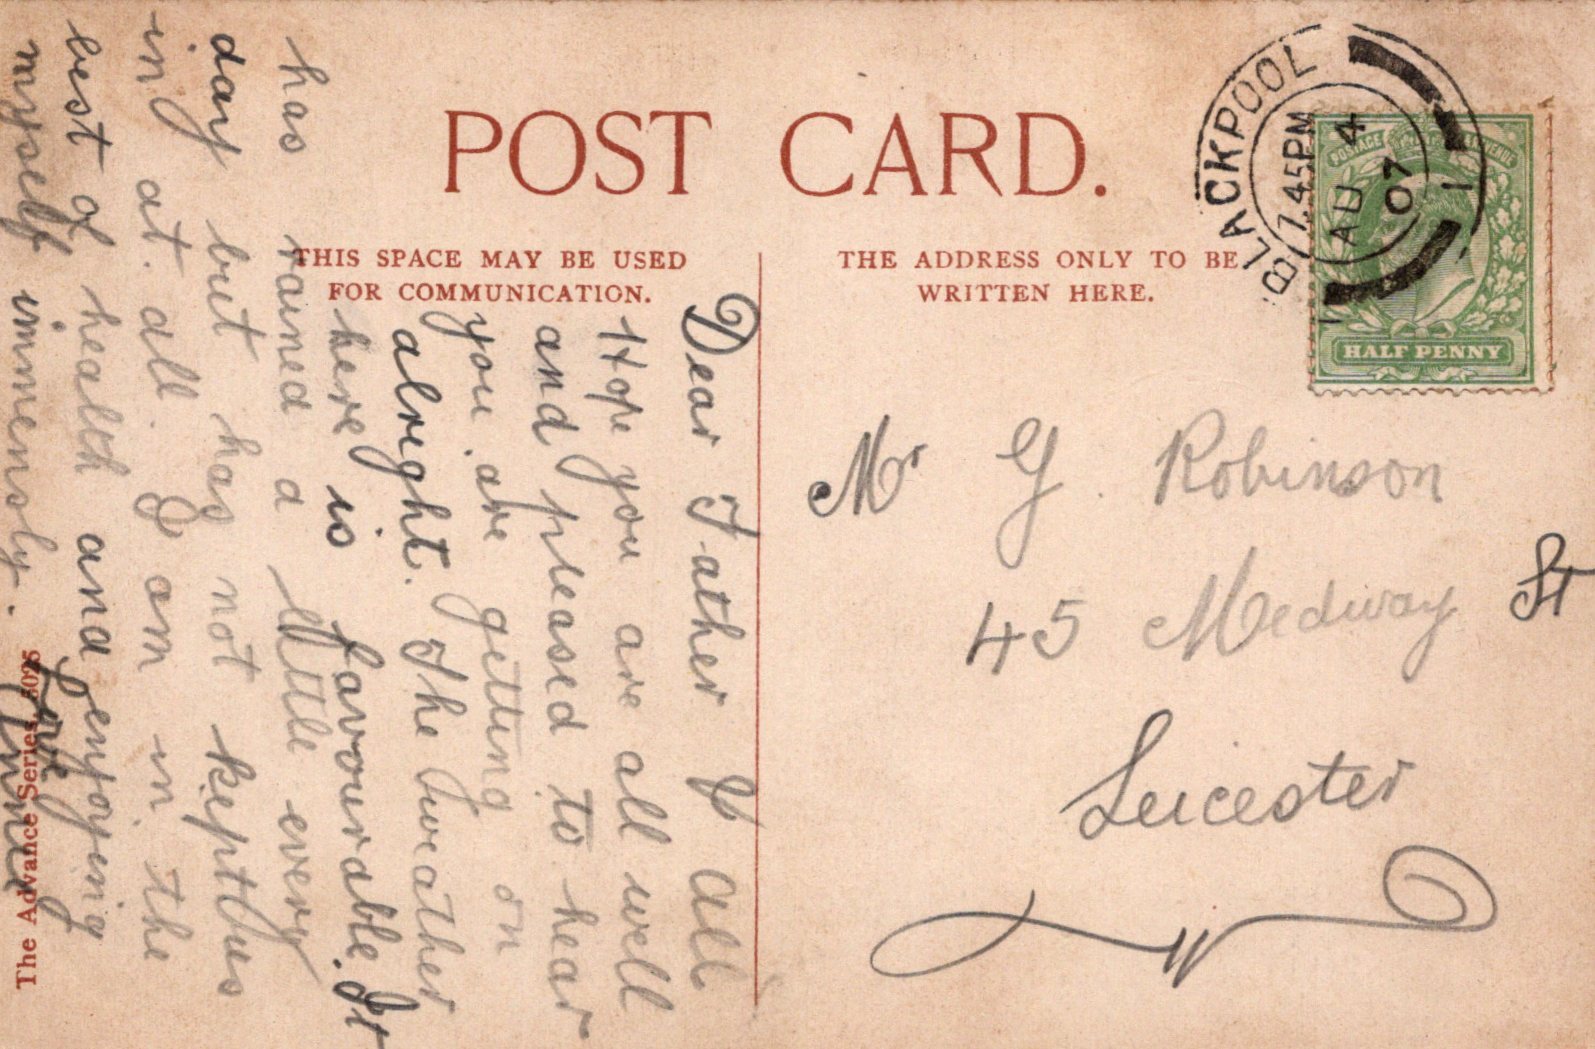 POST CARD.
THIS SPACE MAY BE USED
FOR COMMUNICATION.
THE ADDRESS ONLY TO BE
WRITTEN HERE.
BLACKPOOL
7.45PM
AU 4
07
POSTAGE REVENUE
HALF PENNY
Mr G. Robinson
45 Medway St
Leicester
Dear Father & all
Hope you are all well
and pleased to hear
you are getting on
alright. The weather
here is favourable. It
has rained a little every
day but has not kept us
in at all. I am in the
best of health and enjoying
myself immensly.
The Advance Series 5025